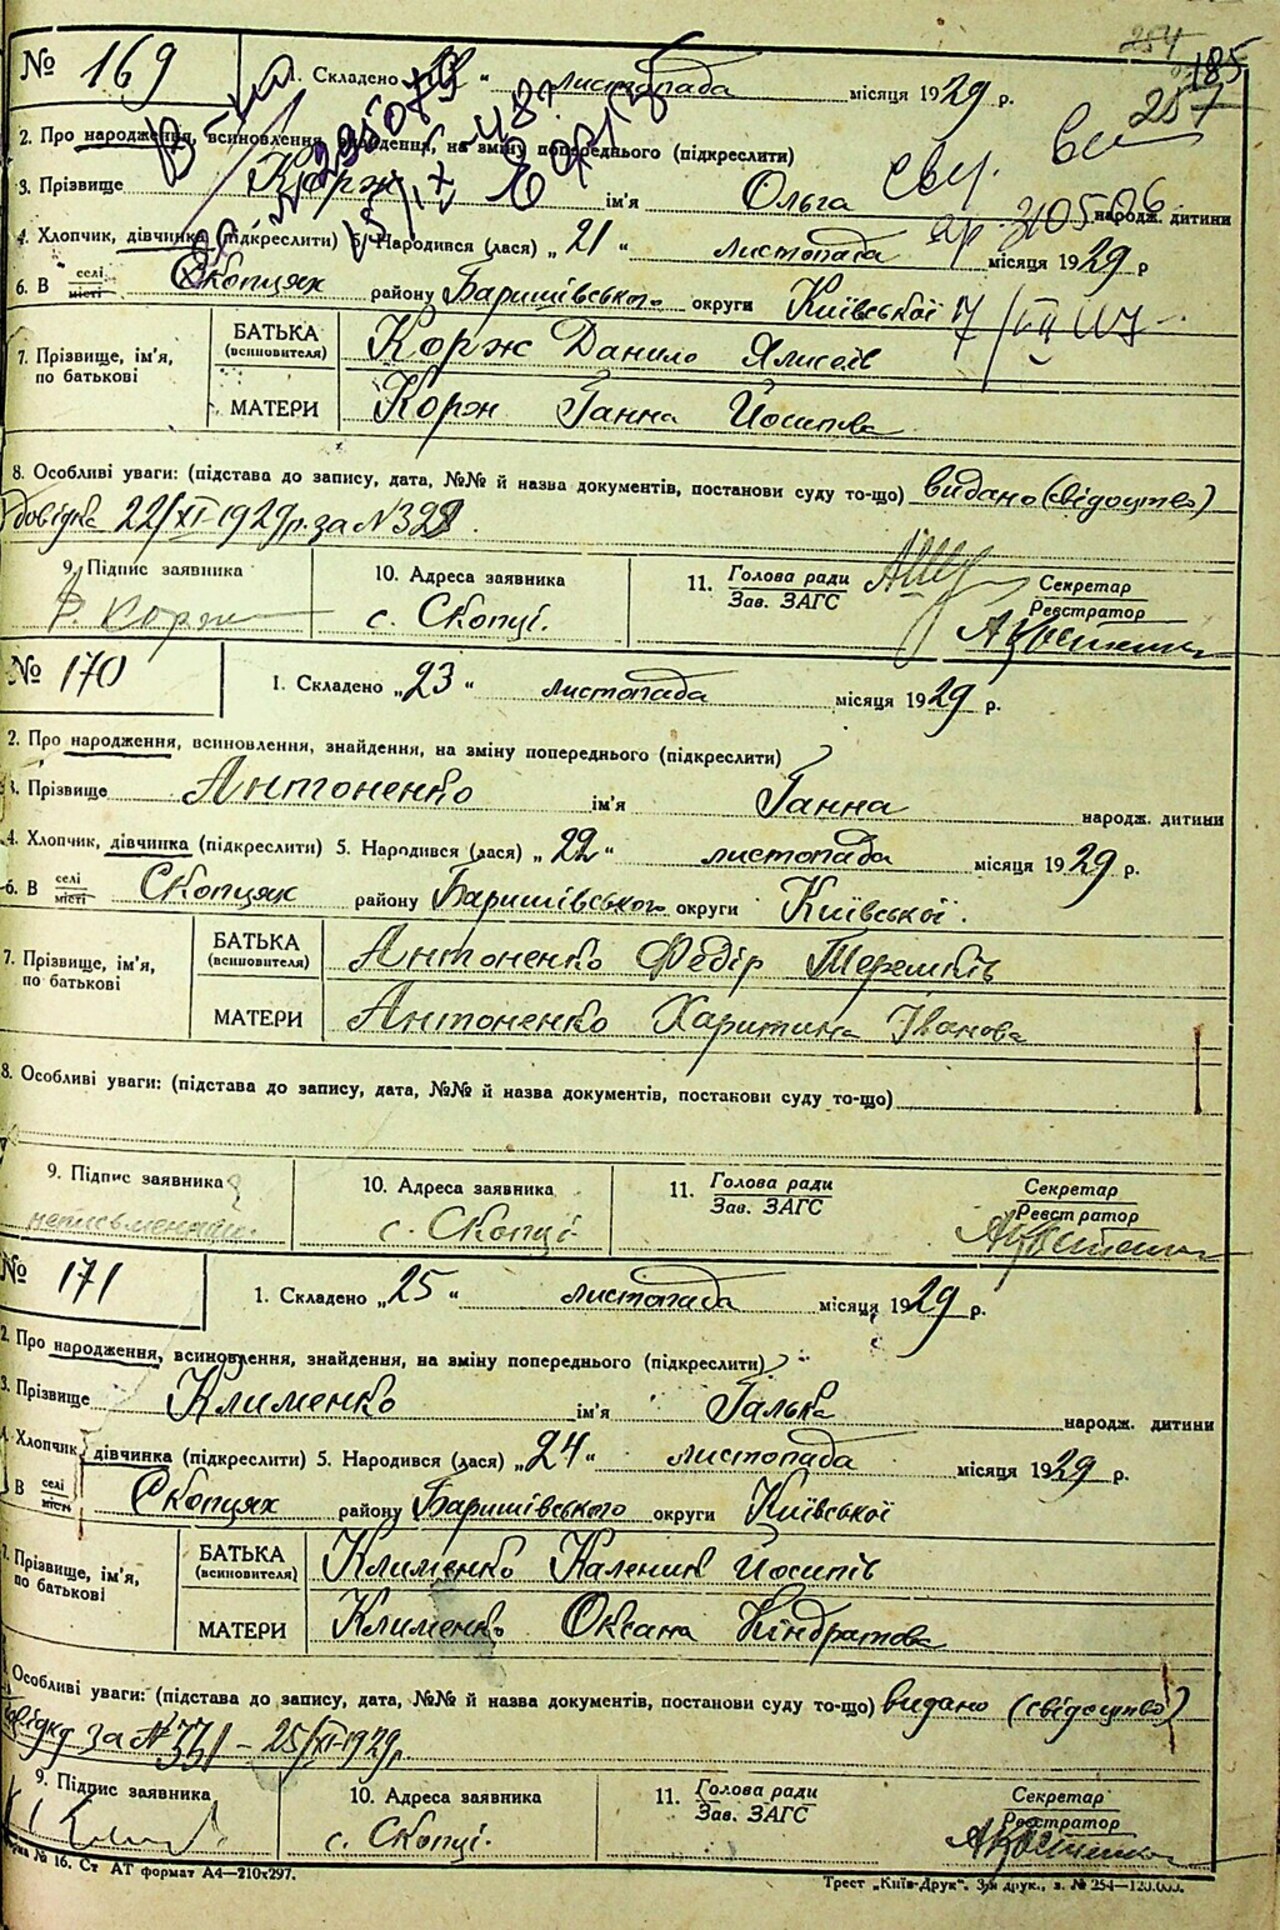 254
185
257
№ 169
1. Складено „ “ листопада місяця 1929 р.
2. Про народження, всиновлення, знайдення, на зміну попереднього (підкреслити)
3. Прізвище Корж ім'я Ольга народж. дитини
4. Хлопчик, дівчинка (підкреслити) 5. Народився (лася) „21“ листопада місяця 1929 р
6. В селі місті Скопцях району Баришівського округи Київської
7. Прізвище, ім'я, по батькові
БАТЬКА (всиновителя) Корж Данило
МАТЕРИ Корж Ганна Йосипова
8. Особливі уваги: (підстава до запису, дата, №№ й назва документів, постанови суду то-що) видано (свідоцтво)
довідка 22/XI-1929р. за №328.
9. Підпис заявника Корж
10. Адреса заявника с. Скопці.
11. Голова ради Зав. ЗАГС
Секретар Реєстратор
№ 170
1. Складено „23“ листопада місяця 1929 р.
2. Про народження, всиновлення, знайдення, на зміну попереднього (підкреслити)
3. Прізвище Антоненко ім'я Ганна народж. дитини
4. Хлопчик, дівчинка (підкреслити) 5. Народився (лася) „22“ листопада місяця 1929 р.
6. В селі місті Скопцях району Баришівського округи Київської.
7. Прізвище, ім'я, по батькові
БАТЬКА (всиновителя) Антоненко Федір Терешків
МАТЕРИ Антоненко Харитина Іванова
8. Особливі уваги: (підстава до запису, дата, №№ й назва документів, постакови суду то-що)
9. Підпис заявника неписьменний.
10. Адреса заявника с. Скопці.
11. Голова ради Зав. ЗАГС
Секретар Реєстратор
№ 171
1. Складено „25“ листопада місяця 1929 р.
2. Про народження, всиновлення, знайдення, на зміну попереднього (підкреслити)
3. Прізвище Клименко ім'я Галька народж. дитини
4. Хлопчик дівчинка (підкреслити) 5. Народився (лася) „24“ листопада місяця 1929 р.
В селі місті Скопцях району Баришівського округи Київської
7. Прізвище, ім'я, по батькові
БАТЬКА (всиновителя) Клименко Каленик Йосипів
МАТЕРИ Клименко Оксана Кіндратова
Особливі уваги: (підстава до запису, дата, №№ й назва документів, постанови суду то-що) видано (свідоцтво)
довідку за № 331 – 25/XI-1929р.
9. Підпис заявника
10. Адреса заявника с. Скопці.
11. Голова ради Зав. ЗАГС
Секретар Реєстратор
№ 16. Ст АТ формат А4—210х297.
Трест „Київ-Друк“. 3-я друк., з. № 254—120.000.